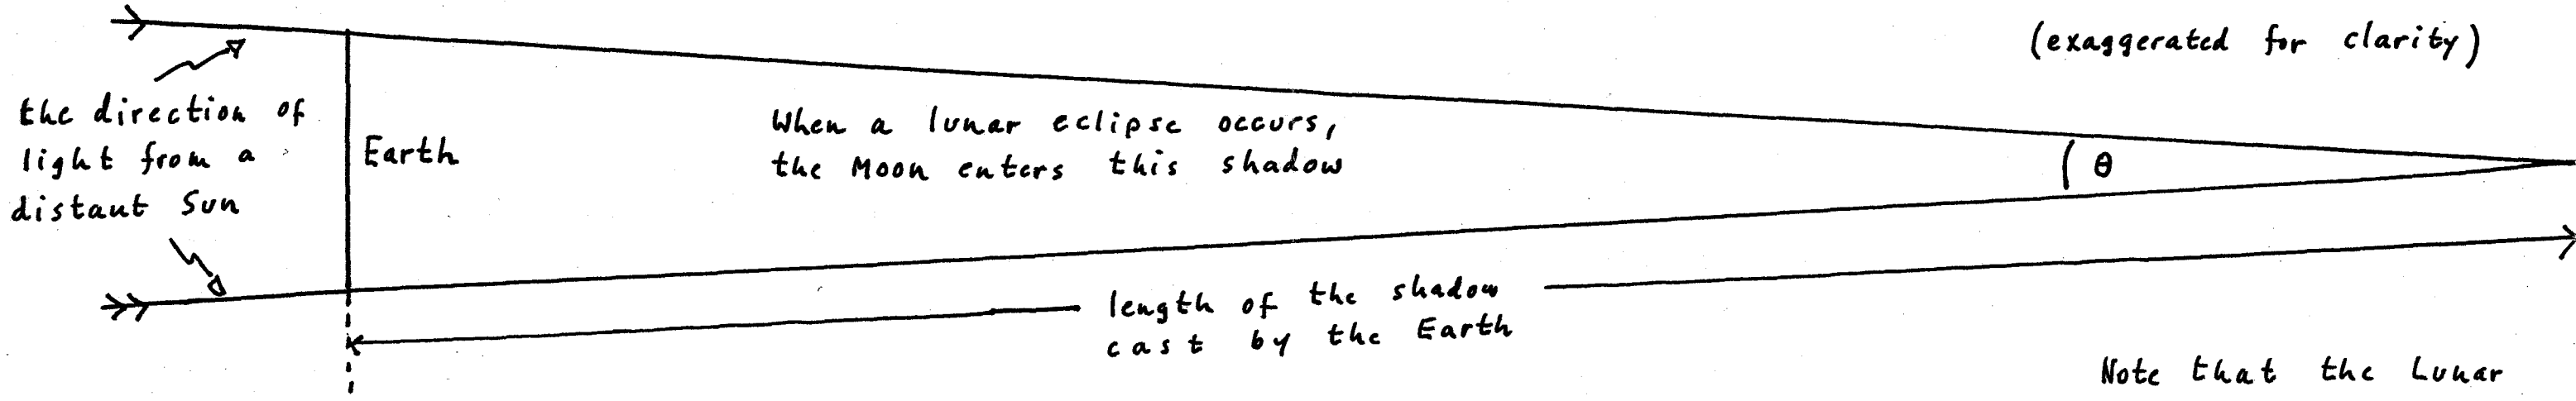 (exaggerated for clarity)
the direction of
light from a
distant Sun
Earth
When a lunar eclipse occurs,
the Moon enters this shadow
θ
length of the shadow
cast by the Earth
Note that the Lunar